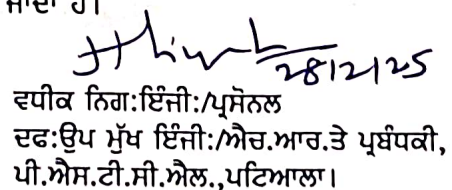 ਜਾਂਦਾ ਹੈ।
28/2/25
ਵਧੀਕ ਨਿਗ:ਇੰਜੀ:/ਪ੍ਰਸੋਨਲ
ਦਫ:ਉਪ ਮੁੱਖ ਇੰਜੀ:/ਐਚ.ਆਰ.ਤੇ ਪ੍ਰਬੰਧਕੀ,
ਪੀ.ਐਸ.ਟੀ.ਸੀ.ਐਲ.,ਪਟਿਆਲਾ।